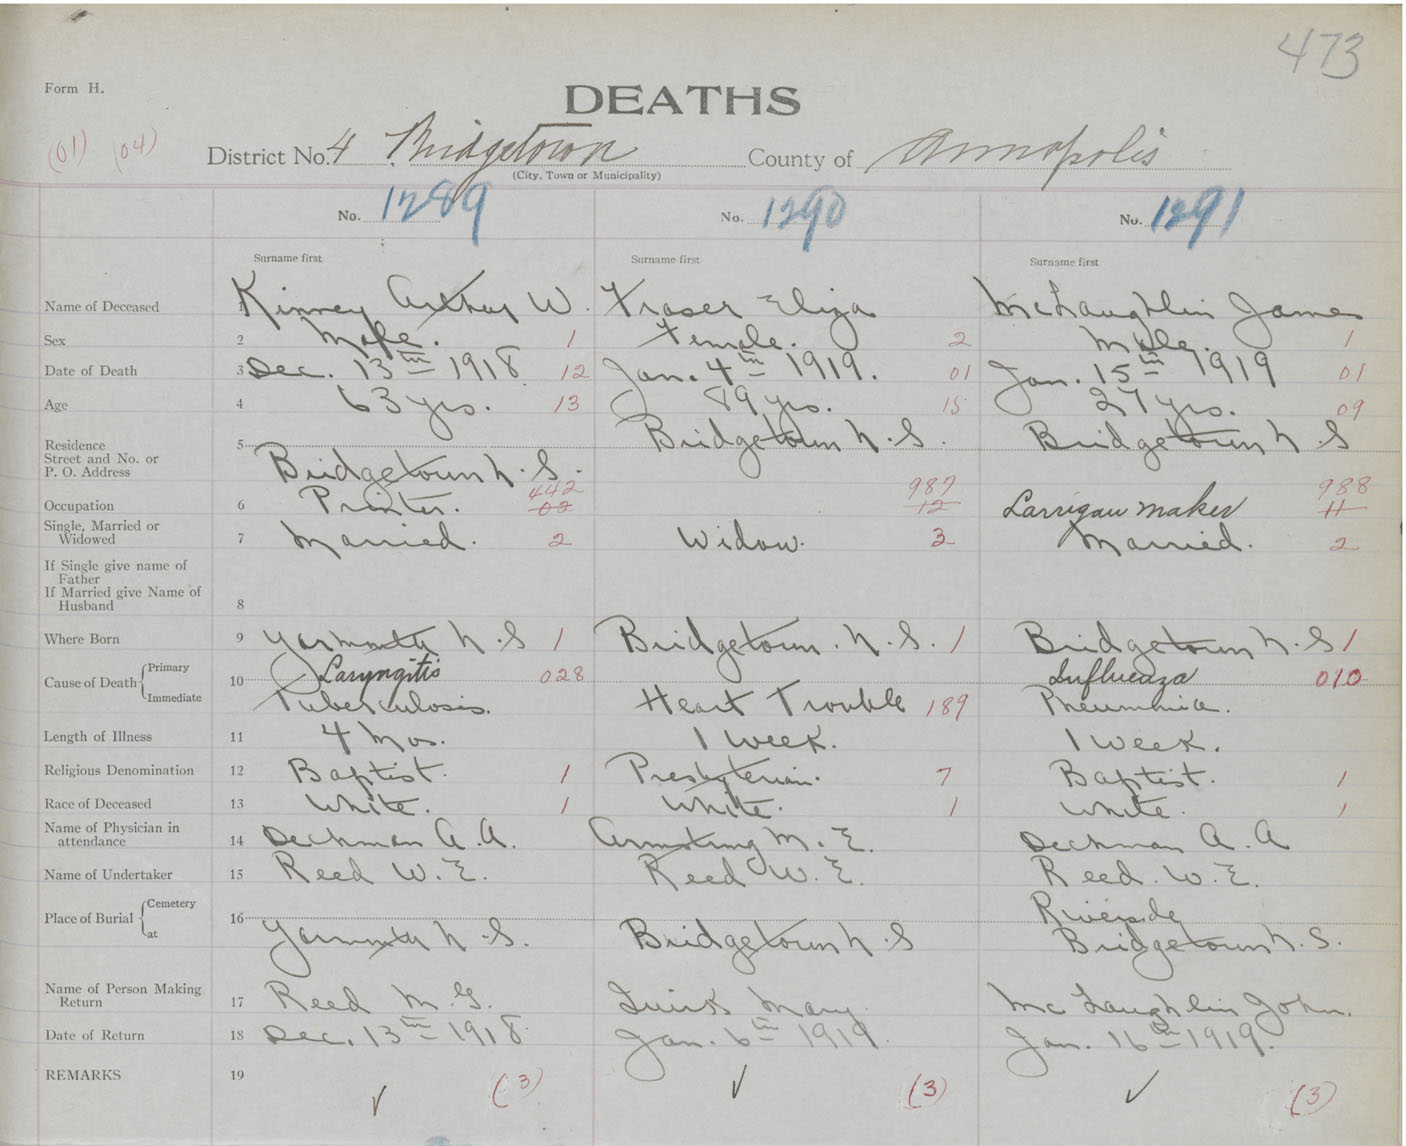 473
Form H.
DEATHS
(01) (04)
District No. 4 Bridgetown County of Annapolis
(City, Town or Municipality)
No. 1289 No. 1290 No. 1291
Surname first Surname first Surname first
Name of Deceased 1 Kinney Arthur W. Fraser Eliza McLaughlin James
Sex 2 Male. 1 Female. 2 Male. 1
Date of Death 3 Dec. 13th 1918 12 Jan. 4th 1919. 01 Jan. 15th 1919 01
Age 4 63 yrs. 13 89 yrs. 15 27 yrs. 09
Residence
Street and No. or
P. O. Address
5 Bridgetown N.S. Bridgetown N.S. Bridgetown N.S
442 987 988
Occupation 6 Printer. 02 12 Larrigan maker 11
Single, Married or
Widowed
7 Married. 2 Widow. 3 Married. 2
If Single give name of
Father
If Married give Name of
Husband
8
Where Born 9 Yarmouth N.S 1 Bridgetown. N.S. 1 Bridgetown N.S 1
Cause of Death Primary 10 Laryngitis 028 Influenza 010
Immediate Tuberculosis. Heart Trouble 189 Pneumonia.
Length of Illness 11 4 Mos. 1 week. 1 week.
Religious Denomination 12 Baptist. 1 Presbyterian. 7 Baptist. 1
Race of Deceased 13 White. 1 White. 1 White. 1
Name of Physician in
attendance
14 Deckman A.A. Armstrong M.E. Deckman A.A
Name of Undertaker 15 Reed W.E. Reed W.E. Reed. W.E.
Place of Burial Cemetery 16 Riverside
at Yarmouth N.S. Bridgetown N.S Bridgetown N.S.
Name of Person Making
Return
17 Reed M.G. Mary McLaughlin John.
Date of Return 18 Dec. 13th 1918. Jan. 6th 1919. Jan. 16th 1919.
REMARKS 19
(3) (3) (3)